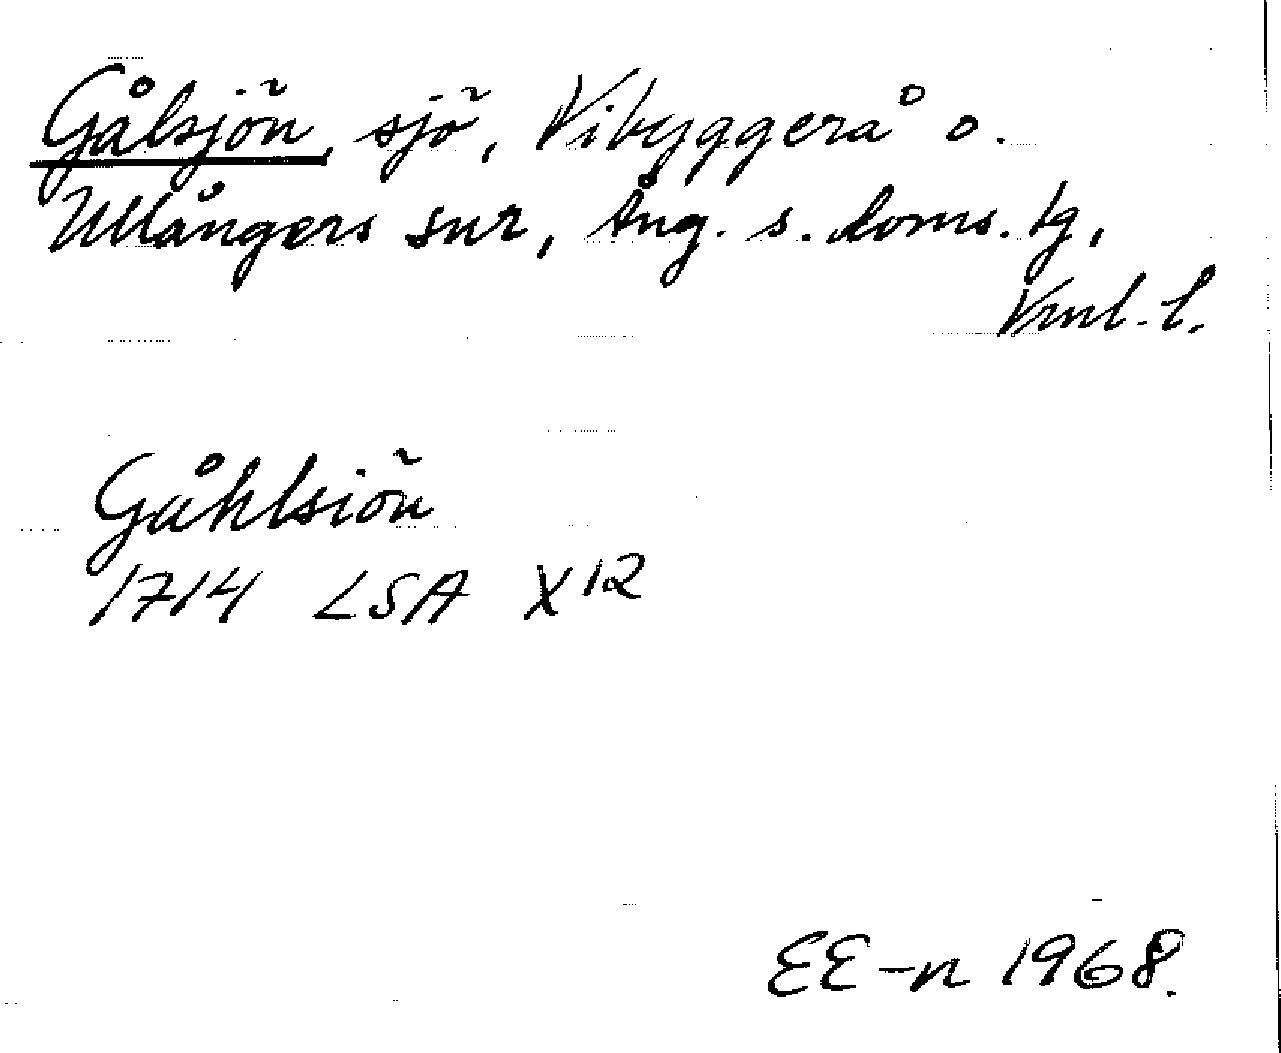 Gålsjön, sjö, Vibyggerå o.
Ullångers snr, Ång. s. doms. tg,
Vnnl. l.
Gåhlsiön
1714 LSA X12
EE-n 1968.